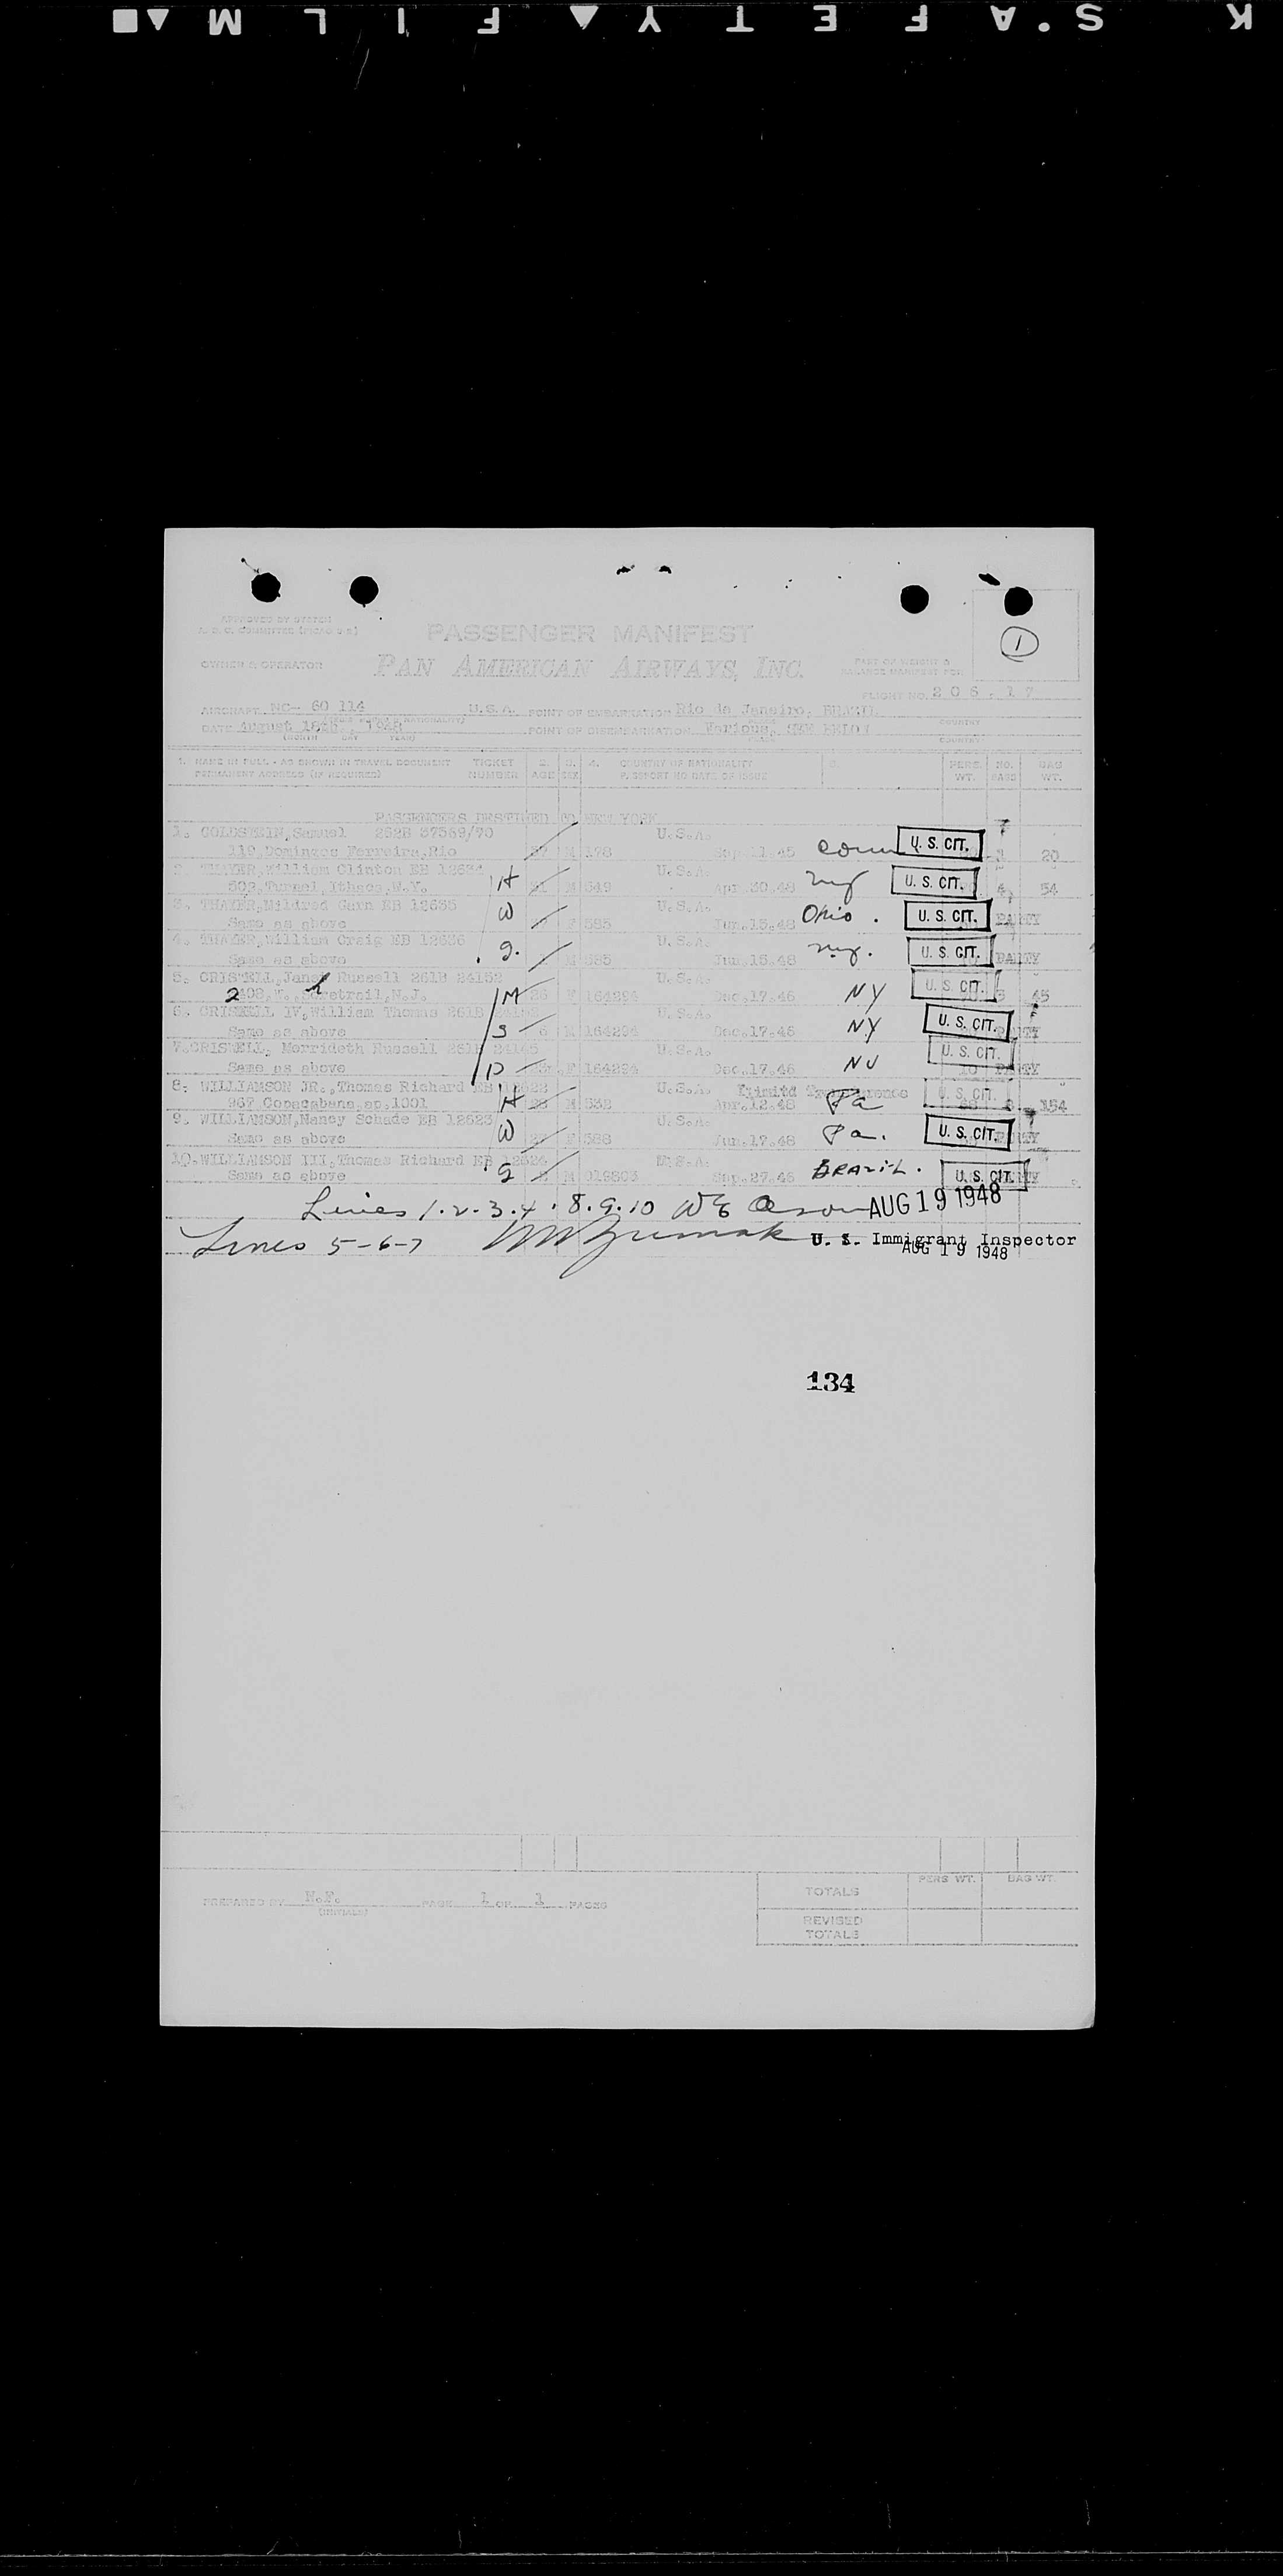 K S.A F E T Y ▲ F I L M ▲ ■
APPROVED BY SYSTEM
PASSENGER MANIFEST
1
OWNER & OPERATOR PAN AMERICAN AIRWAYS, INC. PART OF WEIGHT & BALANCE MANIFEST FOR
FLIGHT NO. 206.17
AIRCRAFT NC- 60 114 U.S.A. POINT OF EMBARKATION Rio de Janeiro, BRAZIL
DATE August 18th, 1948 POINT OF DISEMBARKATION Various, SEE BELOW
(MONTH DAY YEAR) COUNTRY
1. NAME IN FULL - AS SHOWN IN TRAVEL DOCUMENT TICKET 2. 3. 4. COUNTRY OF NATIONALITY PERS. NO. BAG
PERMANENT ADDRESS (IF REQUIRED) NUMBER AGE SEX PASSPORT NO DATE OF ISSUE WT. BAGS WT.
PASSENGERS DESTINED TO NEW YORK
1. GOLDSTEIN, Samuel 252B 57569/70 U.S.A.
119, Domingos Ferreira, Rio M 178 Sep. 11.45 Conn U. S. CIT. 1 20
2. THAYER, William Clinton EB 12634 H U.S.A.
502, Turner, Ithaca, N.Y. M 549 Apr. 30.48 NY U. S. CIT. 4 54
3. THAYER, Mildred EB 12635 W U.S.A.
Same as above F 585 Jun. 15.48 Ohio . U. S. CIT. PARTY
4. THAYER, William Craig EB 12636 S. U.S.A.
Same as above M 585 Jun. 15.48 NY. U. S. CIT. PARTY
5. CRISTELL, Janet Russell 261B 24152 U.S.A.
M 26 F 164294 Dec. 17.46 NY U. S. CIT. 3 45
6. CRISTELL IV, William Thomas 261B U.S.A.
Same as above S 6 M 164294 Dec. 17.46 NY U. S. CIT. PARTY
7. CRISTELL, Merrideth Russell 261B U.S.A.
Same as above D F 164294 Dec. 17.46 NJ U. S. CIT. PARTY
8. WILLIAMSON JR., Thomas Richard EB 12622 U.S.A.
967 Copacabana, ap. 1001 H 28 M 532 Apr. 12.48 Pa U. S. CIT. 154
9. WILLIAMSON, Nancy Schade EB 12623 U.S.A.
Same as above W 27 F 588 Jun. 17.48 Pa. U. S. CIT. PARTY
10. WILLIAMSON III, Thomas Richard EB 12624 U.S.A.
Same as above S M 019803 Sep. 27.46 BRAZIL. U. S. CIT.
Lines 1.2.3.4.8.9.10 AUG 19 1948
Lines 5-6-7 U. S. Immigrant Inspector
AUG 19 1948
134
PREPARED BY N.F. PAGE 1 OF 1 PAGES
(INITIALS)
PERS WT. BAG WT.
TOTALS
REVISED TOTALS